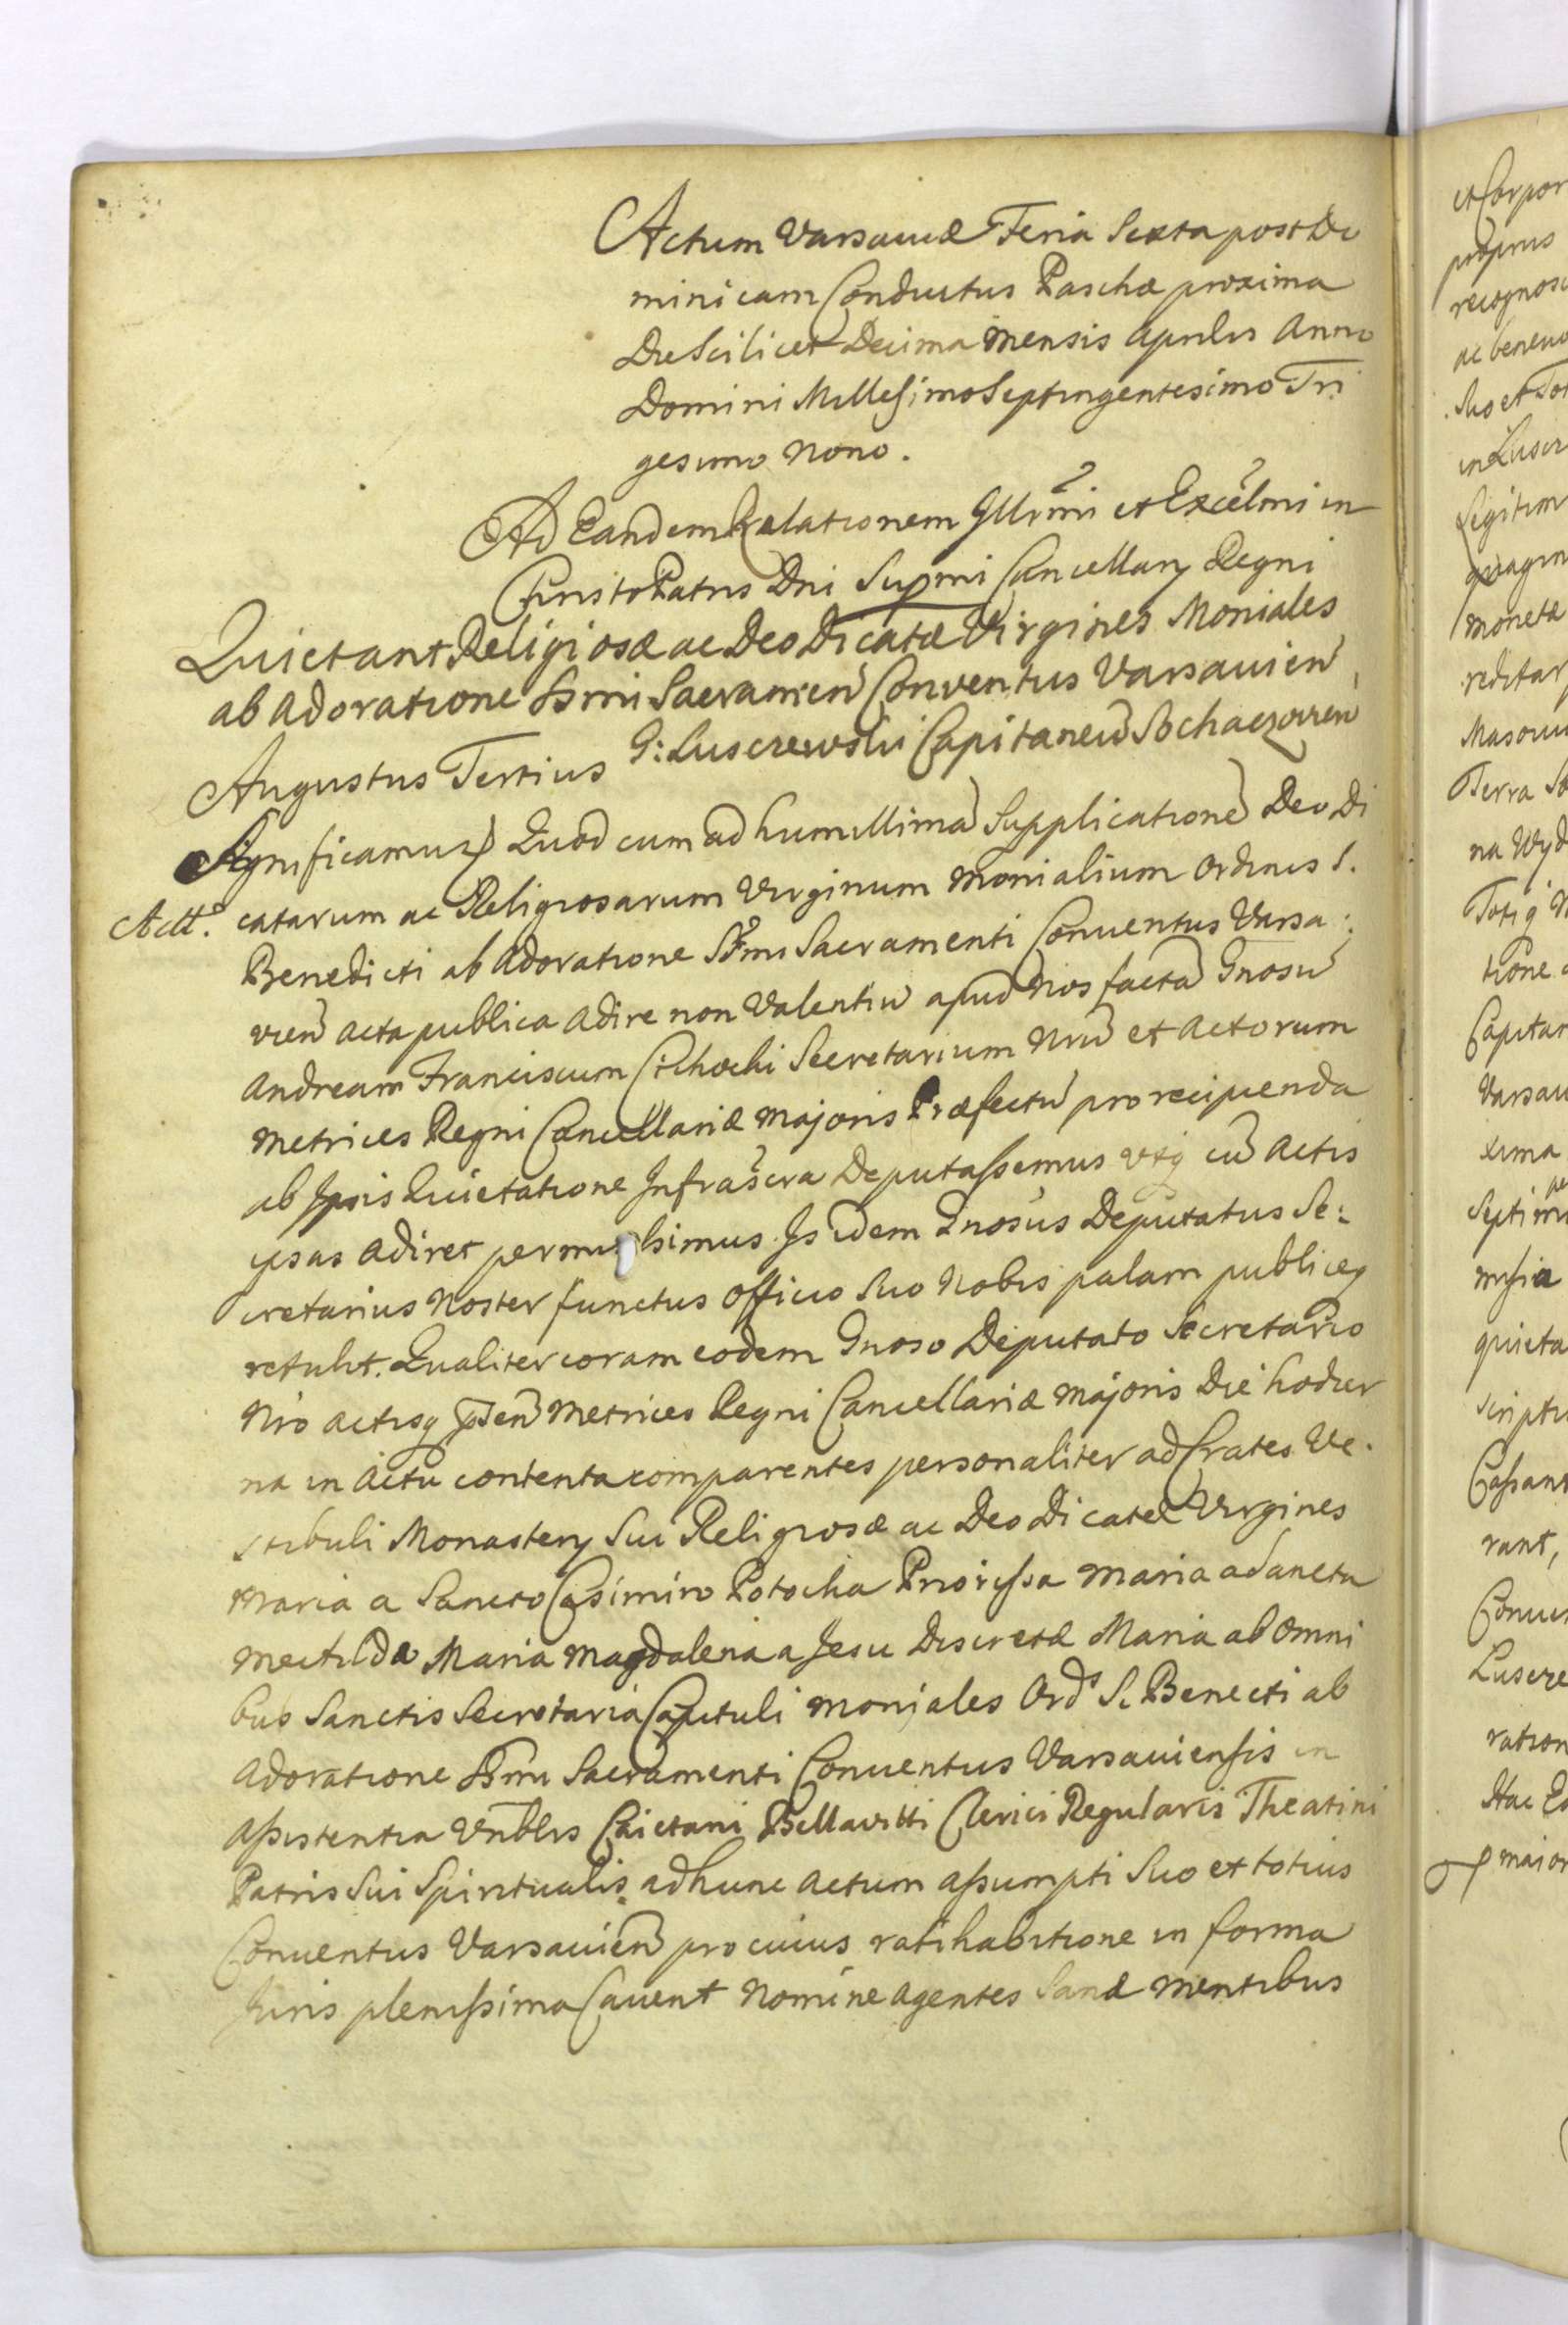 Actum Varsaviæ Feria Sexta post Do
minicam Conductus Paschæ proxima
Die Scilicet Decima Mensis Aprilis Anno
Domini Millesimo Septingentesimo Tri
gesimo Nono.
Ad Eandem Relationem Illrmi et Excelmi in
Christo Patris Dni Supmi Cancellarij Regni
Quietant Religiosæ ac Deo Dicatæ Virgines Moniales
ab Adoratione SSmi Sacramen Conventus Varsavien
G: Luscrewski Capitaneum Sochaczovien
Augustus Tertius
Significamus Quod cum ad humillima Supplicatione Deo Di
Actt.
catarum ac Religiosarum Virginum Monialium Ordinis S.
Benedicti ab Adoratione SSmi Sacramenti Conuentus Varsa:
vien acta publica adire non Valentiu apud Nos facta Gnosu
Andream Franciscum Cichocki Secretarium Nru et Actorum
Metrices Regni Cancellariæ Majoris Præfectu pro recipienda
ab Ipsis Quietatione Infrascra Deputassemus vtq cu Actis
ipsas adiret permisissimus. Is idem Gnosus Deputatus Se:
cretarius Noster functus Officio Suo Nobis palam publiceq
retulit. Qualiter coram eodem Gnoso Deputato Secretario
Nro actisq pnten Metrices Regni Cancellariæ Majoris Die hodier
na in Actu contenta comparentes personaliter ad Crates Ve.
stibuli Monasterij Sui Religiosæ ac Deo Dicatæ Virgines
Maria a Sancto Casimiro Potocka Priorissa Maria a Sancta
Mectilda Maria Magdalena a Jesu Discretæ Maria ab Omni
bus Sanctis Secretaria Capituli Moniales Ord S. Benecti ab
Adoratione SSmi Sacramenti Conuentus Varsauiensis in
Assistentia Vnblis Caietani Bellavitti Clerici Regularis Theatini
Patris Sui Spiritualis ad hunc Actum assumpti Suo et totius
Conuentus Varsauien pro cuius ratihabitione in forma
Juris plenissima Cauent Nomine Agentes Sanæ Mentibus
et Corpor
proprus
recognosc
ac beneuo
Suo et Tot
in Luscr
Legitim
quagin
Moneta
reditar
Masouu
Terra So
na Wyd
Totiq
tione
Capitan
Varsau
xima
Septim
missia
quieta
scriptu
Cassant
rant,
Conuen
Luscre
ration
Hac Ea
maior